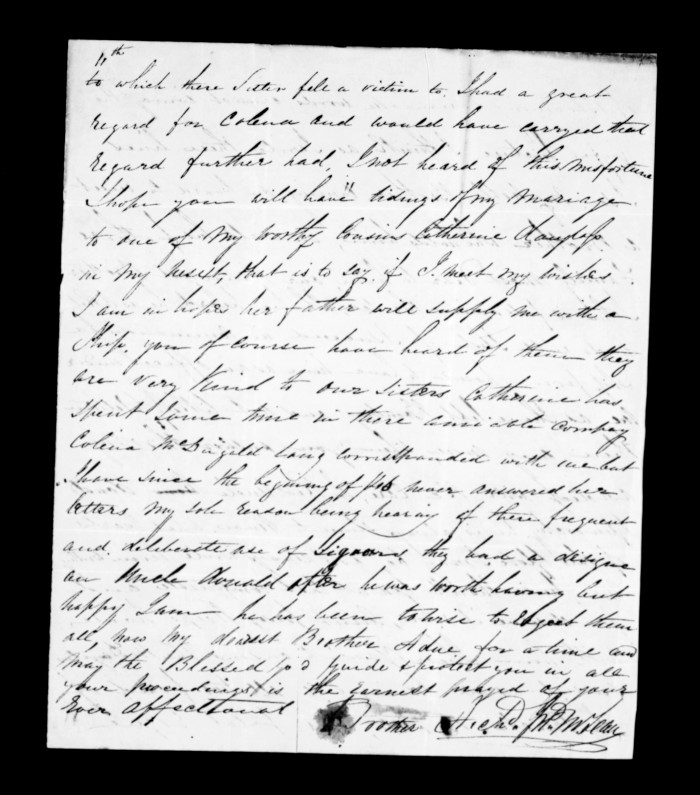 11th
to which there Sister fell a victim to I had a great
regard for Colena and would have carryed that
regard further had, I not heard of this misfortune
I hope you will have tidings of my Mariage
to one of My worthy Cousins Catherine
in my next, that is to say if I meet my wishes.
I am in hopes her father will supply me with a
Ship, you of course have heard of them they
are very kind to our Sisters Catherine has
spent some time in there amicble Compay
Colena McDugald long corresponded with me but
I have since the begining of never answered her
letters My sole reason being hearing of there frequent
and deliberate use of Liquors they had a designe
on Uncle Donald after he was worth having but
happy I am he has been to wise to them
all, now my dearest Brother Adue for a time and
may the Blessed God Guide & protect you in all
your proceedings is the Earnest prayed of your
Ever affectionat Brother Archd. Jn. McLean